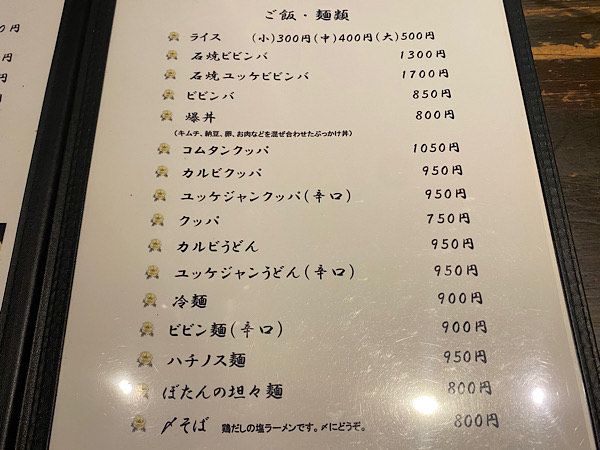 ご飯・麺類
ライス (小)300円(中)400円(大)500円
石焼ビビンバ 1300円
石焼ユッケビビンバ 1700円
ビビンバ 850円
爆丼 800円
(キムチ、納豆、卵、お肉などを混ぜ合わせたぶっかけ丼)
コムタンクッパ 1050円
カルビクッパ 950円
ユッケジャンクッパ(辛口) 950円
クッパ 750円
カルビうどん 950円
ユッケジャンうどん(辛口) 950円
冷麺 900円
ビビン麺(辛口) 900円
ハチノス麺 950円
ぼたんの坦々麺 800円
〆そば 鶏だしの塩ラーメンです。〆にどうぞ。 800円